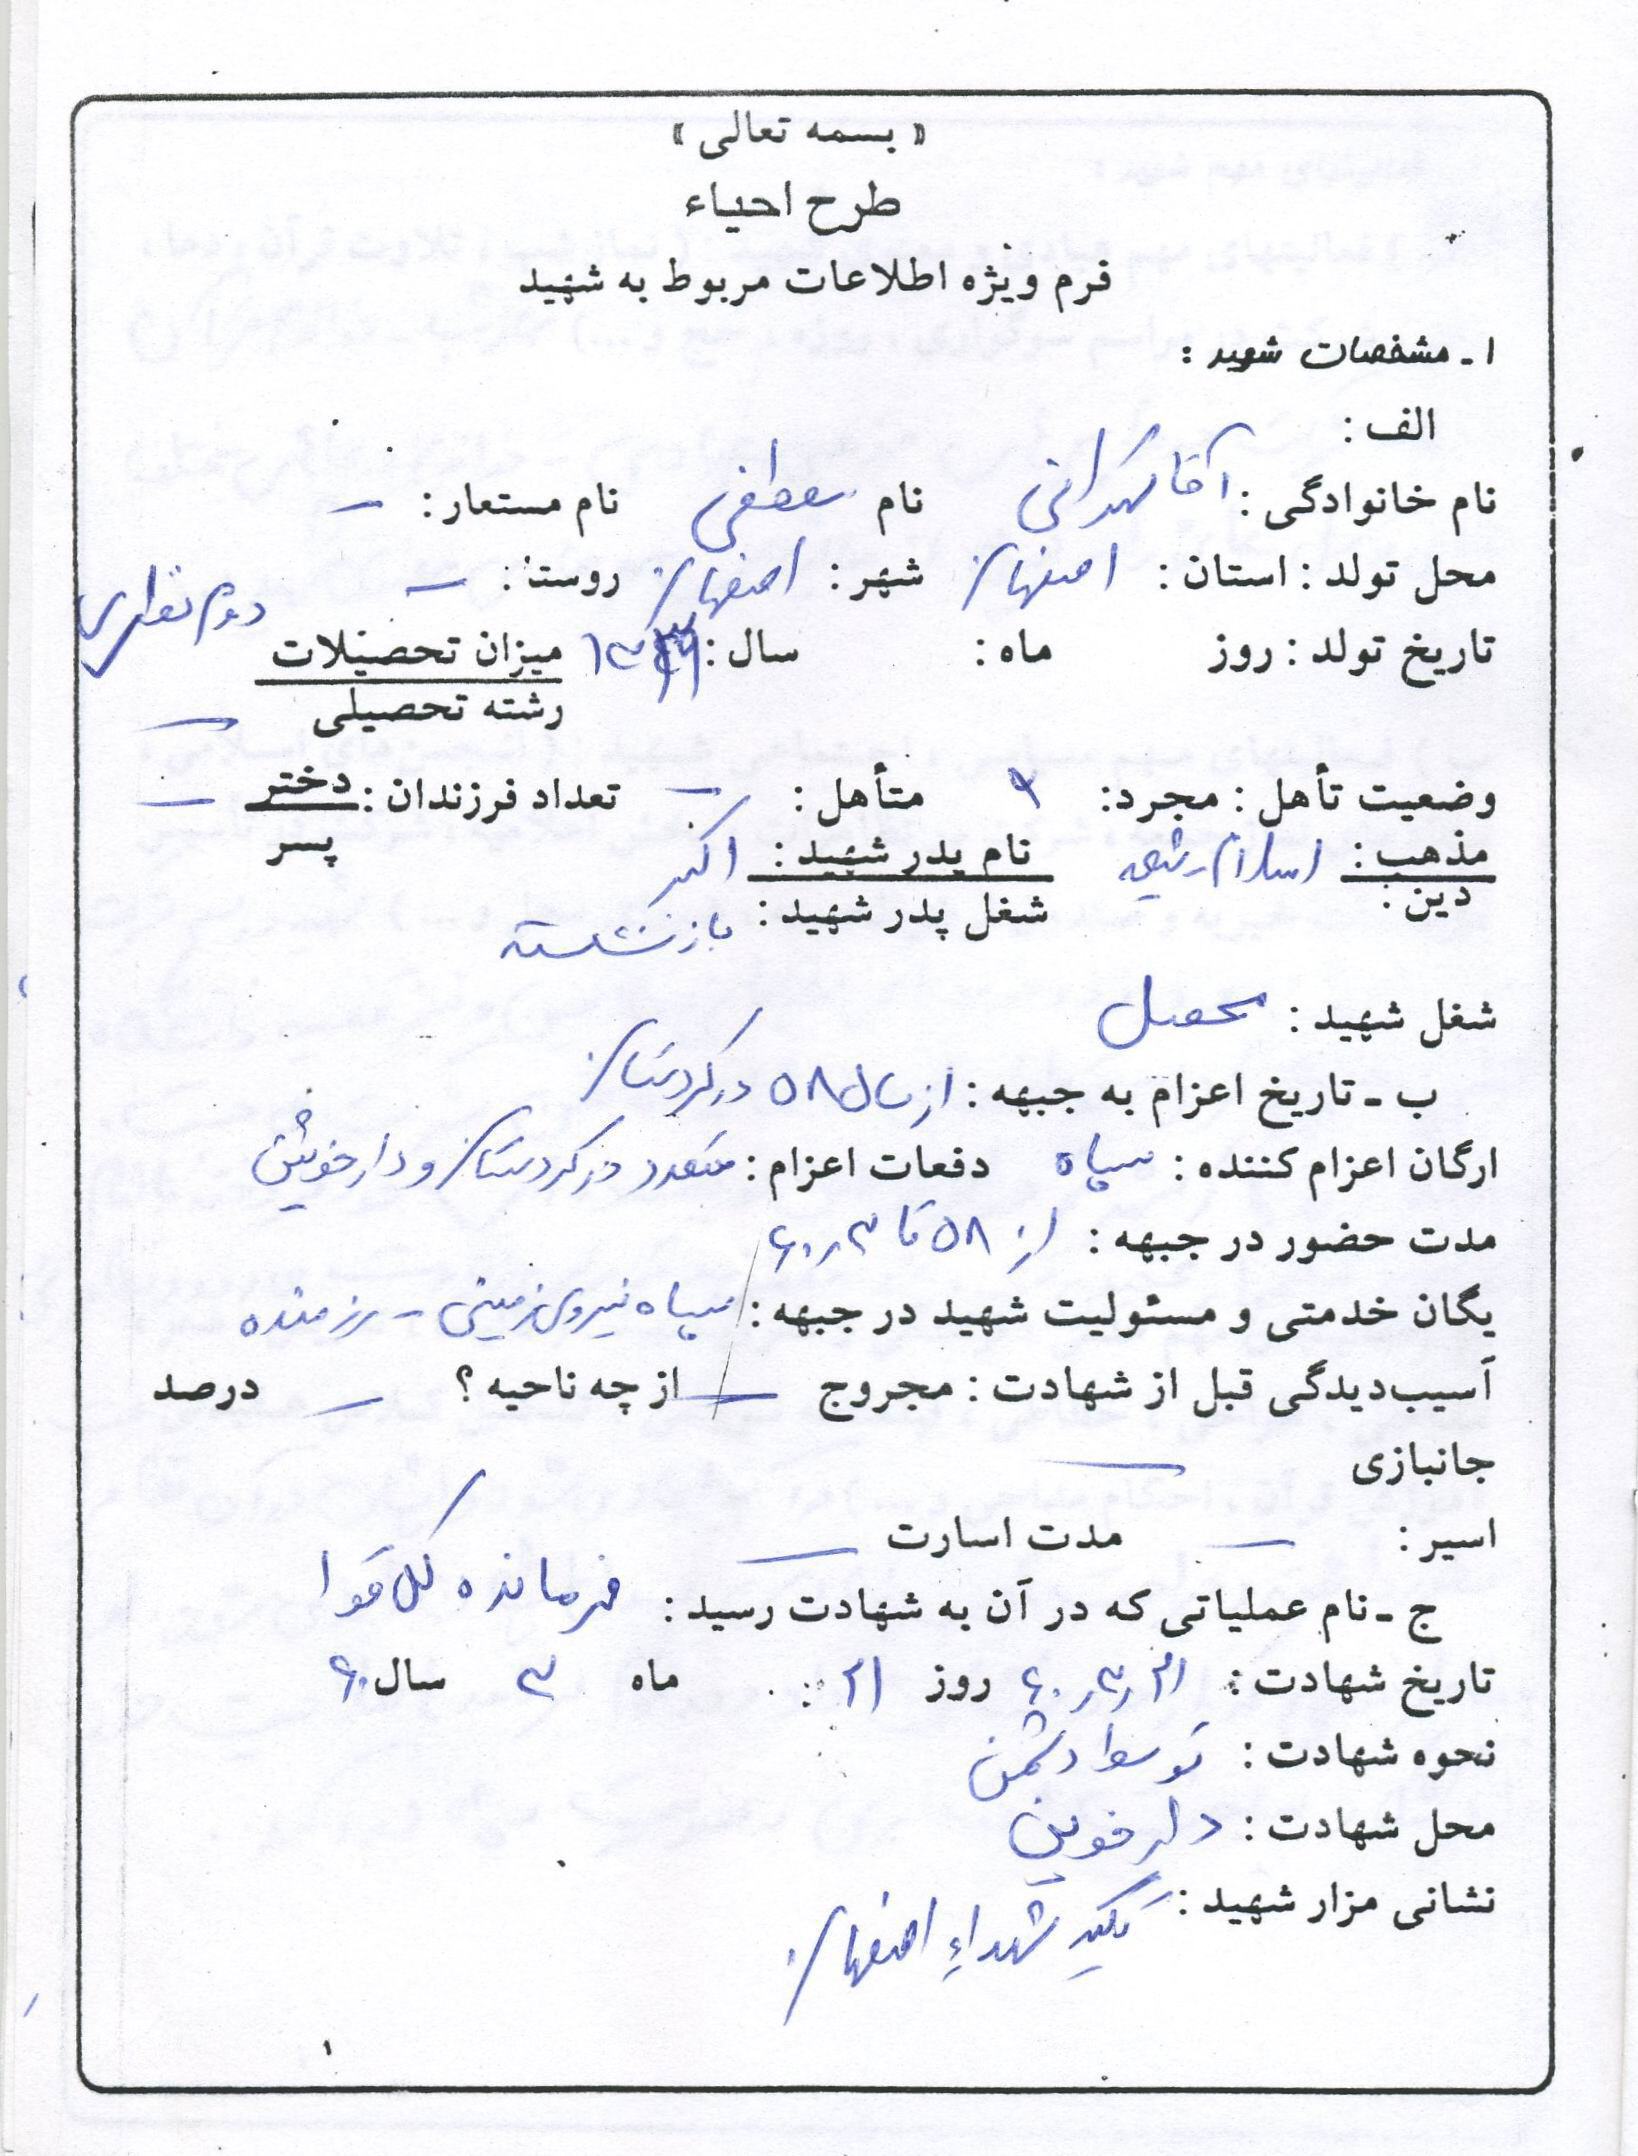 « بسمه تعالی »
طرح احیاء
فرم ویژه اطلاعات مربوط به شهید
۱ ـ مشخصات شهید :
الف :
نام خانوادگی : آقا تهرانی نام مصطفی نام مستعار : –
محل تولد : استان : اصفهان شهر : اصفهان روستا : –
تاریخ تولد : روز ماه : سال : میزان تحصیلات دوم نظری
رشته تحصیلی –
وضعیت تأهل : مجرد : متأهل : – تعداد فرزندان : دختر –
پسر
مذهب : اسلام شیعه نام پدر شهید : اکبر
دین : شغل پدر شهید : بازنشسته
شغل شهید : محصل
ب ـ تاریخ اعزام به جبهه : از سال ۵۸ در کردستان
ارگان اعزام کننده : سپاه دفعات اعزام : متعدد در کردستان و دارخوئین
مدت حضور در جبهه : از ۵۸ تا ۶۰٫۳
یگان خدمتی و مسئولیت شهید در جبهه : سپاه نیروی زمینی – رزمنده
آسیب‌دیدگی قبل از شهادت : مجروح – از چه ناحیه ؟ – درصد
جانبازی –
اسیر : – مدت اسارت –
ج ـ نام عملیاتی که در آن به شهادت رسید : فرمانده کل قوا
تاریخ شهادت : ۶۰٫۳٫۲۱ روز ۲۱ ماه ۳ سال ۶۰
نحوه شهادت : توسط دشمن
محل شهادت : دارخوین
نشانی مزار شهید : تکیه شهداء اصفهان
۱